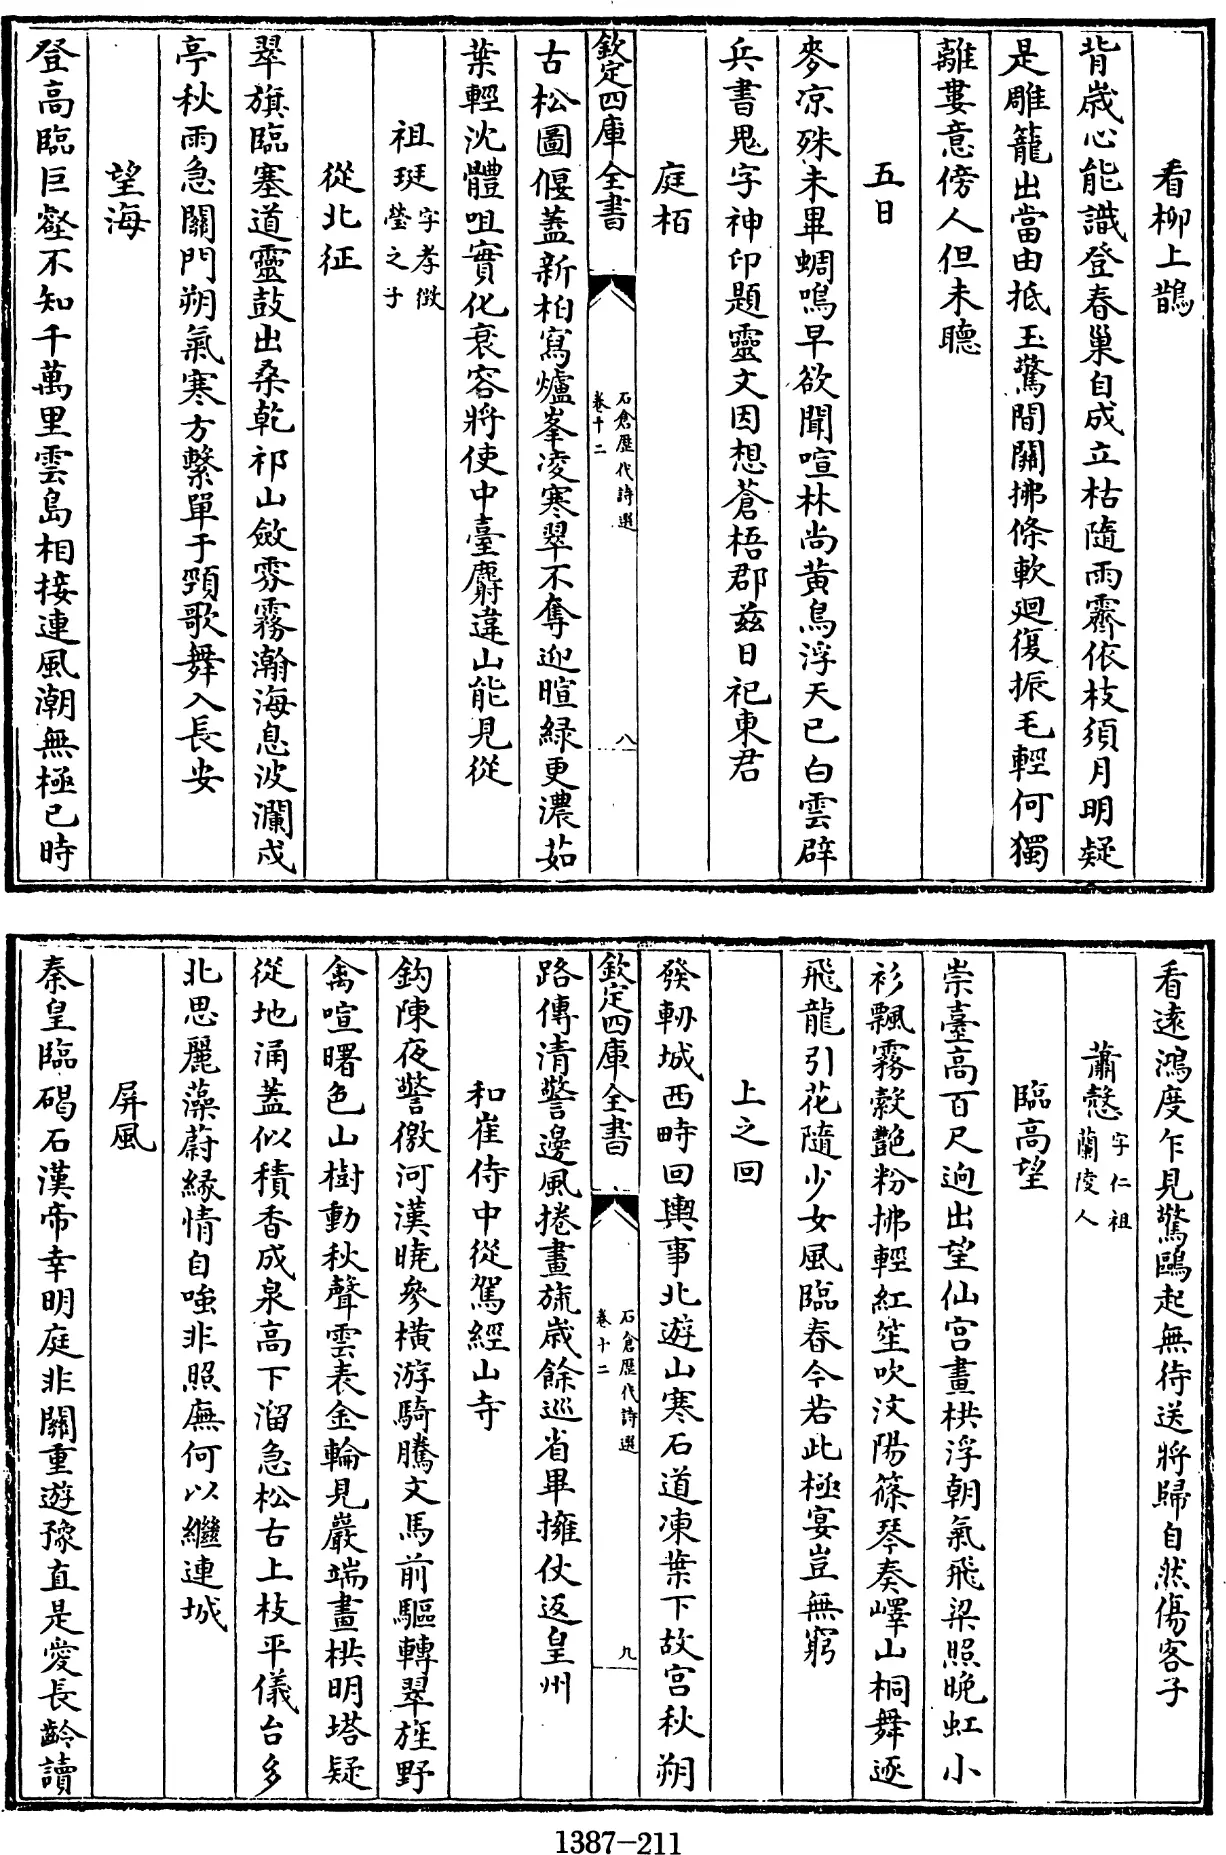 看柳上鵲
背歲心能識登春巢自成立枯隨雨霽依枝須月明疑
是雕籠出當由抵玉驚間關拂條軟廻復振毛輕何獨
離婁意傍人但未聽
五日
麥凉殊未畢蜩鳴早欲聞喧林尚黃鳥浮天已白雲辟
兵書鬼字神印題靈文因想蒼梧郡兹日祀東君
庭栢
欽定四庫全書
石倉歷代詩選
卷十二
八
古松圖偃蓋新柏寫爐峯凌寒翠不奪迎暄緑更濃茹
葉輕沈體咀實化衰容將使中臺麝違山能見從
祖珽字孝徴瑩之子
從北征
翠旗臨塞道靈鼓出桑乾祁山斂雰霧瀚海息波瀾戍
亭秋雨急關門朔氣寒方繫單于頸歌舞入長安
望海
登高臨巨壑不知千萬里雲島相接連風潮無極已時
看遠鴻度乍見驚鷗起無待送將歸自然傷客子
蕭慤字仁祖蘭陵人
臨高望
崇臺高百尺逈出望仙宮畫栱浮朝氣飛梁照晚虹小
衫飄霧縠艶粉拂輕紅笙吹汶陽篠琴奏嶧山桐舞逐
飛龍引花隨少女風臨春今若此極宴豈無窮
上之回
發軔城西畤回輿事北遊山寒石道凍葉下故宮秋朔
欽定四庫全書
石倉歷代詩選
卷十二
九
路傳清警邊風捲畫旒歲餘巡省畢擁仗返皇州
和崔侍中從駕經山寺
鈎陳夜警徼河漢曉參橫游騎騰文馬前驅轉翠旌野
禽喧曙色山樹動秋聲雲表金輪見巖端畫栱明塔疑
從地涌葢似積香成泉高下溜急松古上枝平儀台多
北思麗藻蔚緣情自嗤非照廡何以繼連城
屏風
秦皇臨碣石漢帝幸明庭非關重遊豫直是愛長齡讀
1387-211